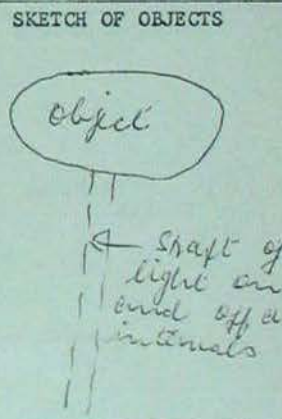 SKETCH OF OBJECTS
object
Shaft of
light on
and off a
intervals